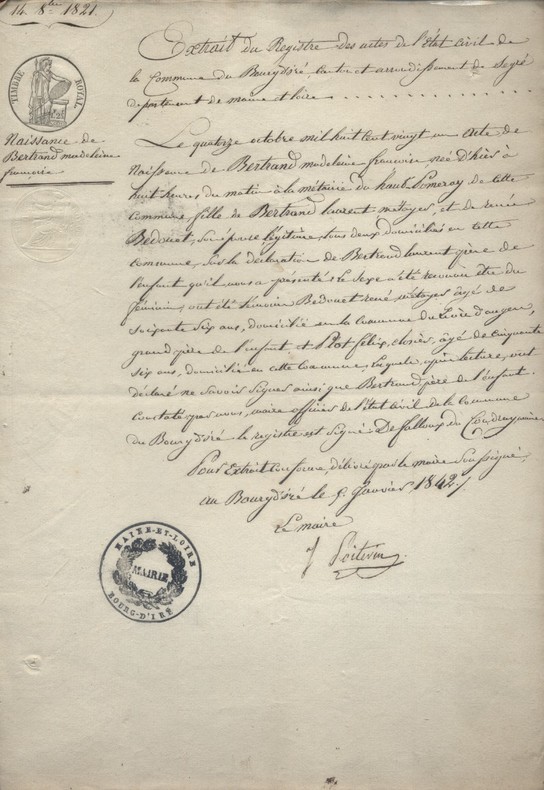 14. 8bre 1821.
TIMBRE ROYAL
Naissance de
Bertrand madeleine
françoise
Extrait du Registre des actes de l'état Civil de
la Commune du Bourg d'iré canton et arrondissement de Segré
département de maine et loire
Le quatorze octobre mil huit cent vingt un Acte de
Naissance de Bertrand madeleine françoise née D'hier à
huit heures du matin à la métairie du haut Pomeray de cette
commune, fille de Bertrand laurent métayer, et de renée
Bedouet, son épouse légitime, tous deux domiciliés en cette
commune, sur la déclaration de Bertrand laurent père de
l'enfant qu'il nous a présenté; le sexe a été reconnu être du
féminin; ont été témoin Bedouet rené métayer âgé de
soixante six ans, domicilié en la commune du
grand père de l'enfant et Plot félix, closier, âgé de cinquante
six ans, domicilié en cette commune, lesquels, après lecture, ont
déclaré ne savoir signer ainsi que Bertrand père de l'enfant.
Constaté par nous, maire officier de l'état Civil de la Commune
du Bourg d'iré le registre est signé De falloux du Coudray maire
Pour Extrait conforme, délivré par le maire Soussigné,
au Bourg d'iré le 5 Janvier 1842.
Le maire
J Poitevin
MAINE-ET-LOIRE
MAIRIE
BOURG-D'IRÉ